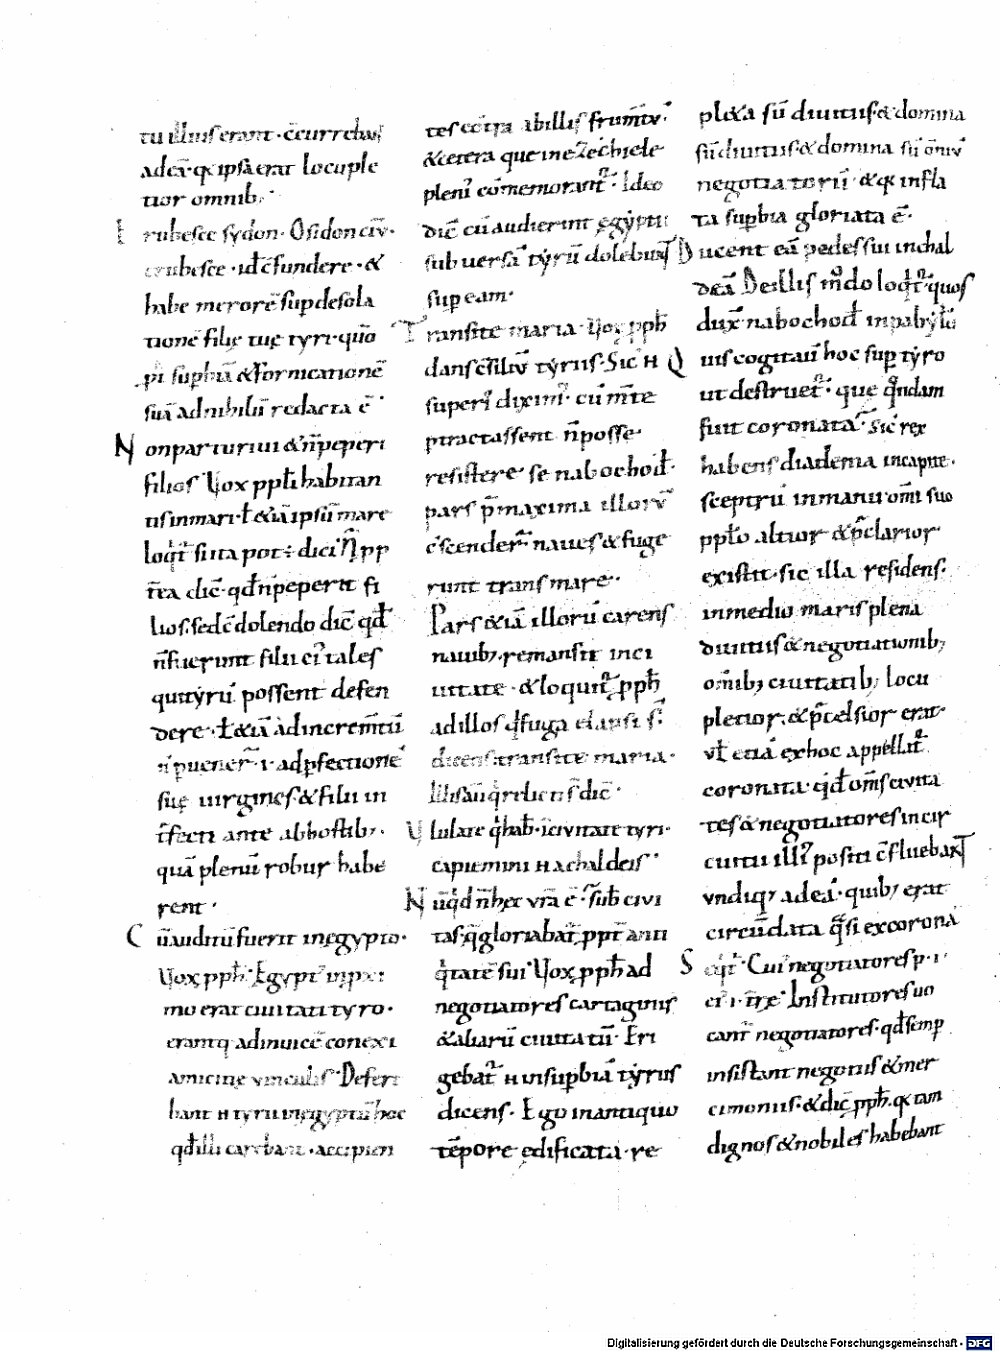 tu illius erant · c̄currebat
adeā · q̄ ipsa erat locuple
tior omnib;
Erubesce sydon · O sidon civ̄ ·
erubesce · id c̄fundere · &
habe merorē sup desola
tionē filię tuę tyri · quō
sup̄biā & fornicationē
suā ad nihilū redacta ē
Non parturiui & n̄ peperi
filios Vox pph̄i habitan
tis in mari · ł & iā ipsū mare
loqt̄ si ita pot ÷ dici N̄ pp
t̄ea dic̄ · qd̄ n̄ peperit fi
lios · sed c̄dolendo dic̄ qd̄
n̄ fuerunt filii ei tales
qui tyrū possent defen
dere · ł & iā ad increm̄tū
n̄ puener̄ · i · ad pfectionē
suę uirgines & filii in
t̄fecti ante ab hostib; ·
quā plenū robur habe
rent ·
Cū auditū fuerit in egypto ·
Vox pph̄ · Egypt
mo erat ciuitati tyro ·
erantq adinuicē conexi
amicitię vinculis · Defere
bant H tyrii in egyptū hoc
qd̄ illi carebant · accipien
tes ec̄tra ab illis frum̄tv̄ ·
& cetera que in ezechiele
pleni cōmemorant̄ · Ideo
dic̄ cū audierint ęgyptii
subuersā tyrū dolebunt
sup eam ·
Transite maria · Vox pph̄
dans c̄siliv̄ tyriis · Sic H
superi dixim · cū m̄te
ptractassent n̄ posse
resistere se nabochod̄ ·
pars p̄maxima illorv̄
c̄scender̄ naues & fuge
runt trans mare ·
Pars & iā illorū carens
nauib; · remansit inci
uitate · & loquit̄ pph̄
ad illos q̄ fuga elapsi s̄
dicens · transite maria ·
dic̄ ·
Vlulate q̄ hab̄ · īcivitate tyri ·
capiemini H a chaldeis ·
Nūqd̄ n̄ hec vr̄a ē · s̄ub civi
tas · q̄ gloriabat̄ ppt̄ anti
q̄tatē sui Vox pph̄ ad
negotiatores cartaginis
& aliarū ciuitatū · Eri
gebat̄ H in sup̄biā tyrus
dicens · Ego in antiquo
tēpore edificata · re
pl&a sū diuitiis & domina
sū diuitiis & domina sū ōniv̄
negotiatoriū · & q̄ infla
ta sup̄bia gloriata ē ·
Ducent eā pedes sui in chal
deā De illis m̄do loqt̄ · quos
dux̄ nabochod̄ in babylō
Quis cogitau hoc sup tyro
ut destruet̄ · que q̄ndam
fuit coronata · sic rex
habens diadema in capite ·
sceptrū in manu om̄i suo
pplō altior & p̄clarior
existit · sic illa residens ·
in medio maris plena
diuitiis & negotiationib;
om̄ib; ciuitatib; locu
pletior · & p̄celsior erat ·
vł etiā ex hoc appellat̄
coronata · q̄d om̄s civita
tes & negotiatores in cir
cuitu illi positi c̄fluebant
vndiq; ad eā · quib; erat
circūdata q̄si ex corona
Seqt̄ · Cui negotiatores p · i ·
ei · i · Institutores uo
cant̄ negotiatores · qd̄ semp
insistant negotiis & mer
cimoniis · & dic̄ pph̄ · q̄ tam
dignos & nobiles habebant
Digitalisierung gefördert durch die Deutsche Forschungsgemeinschaft - DFG